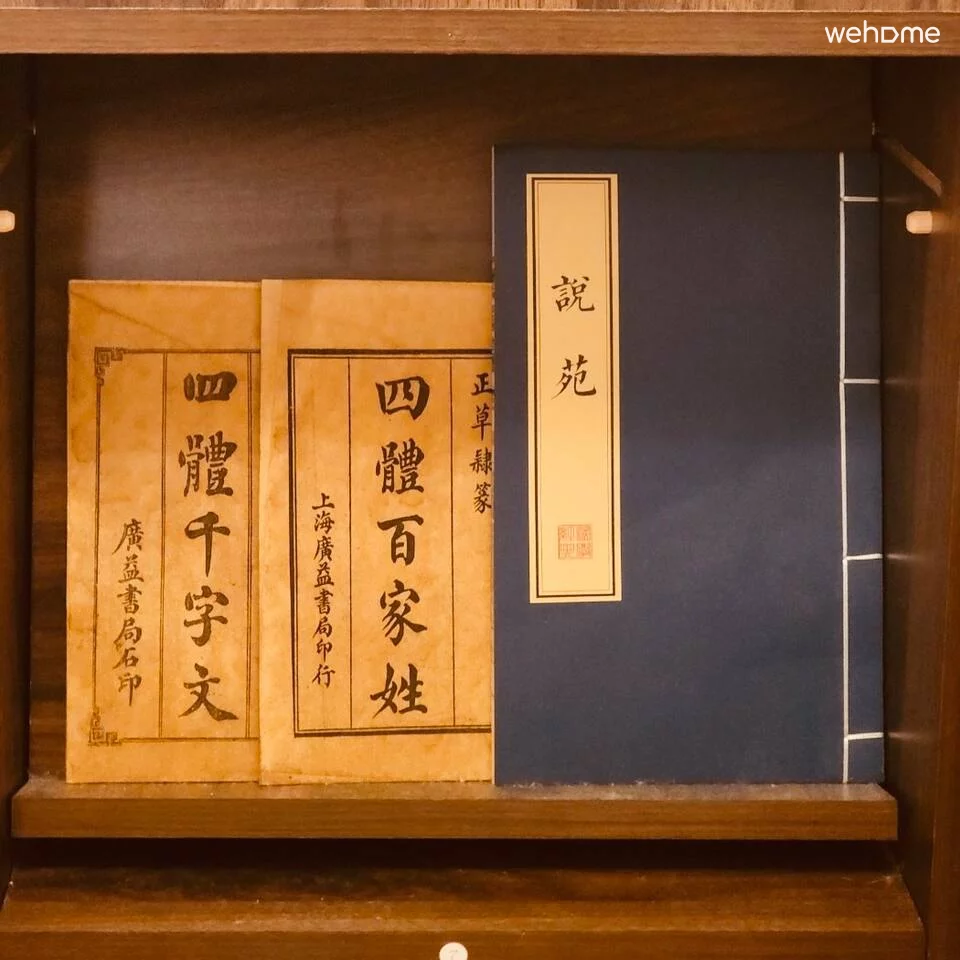 wehome
四體千字文
廣益書局石印
正草隸篆
四體百家姓
上海廣益書局印行
說苑